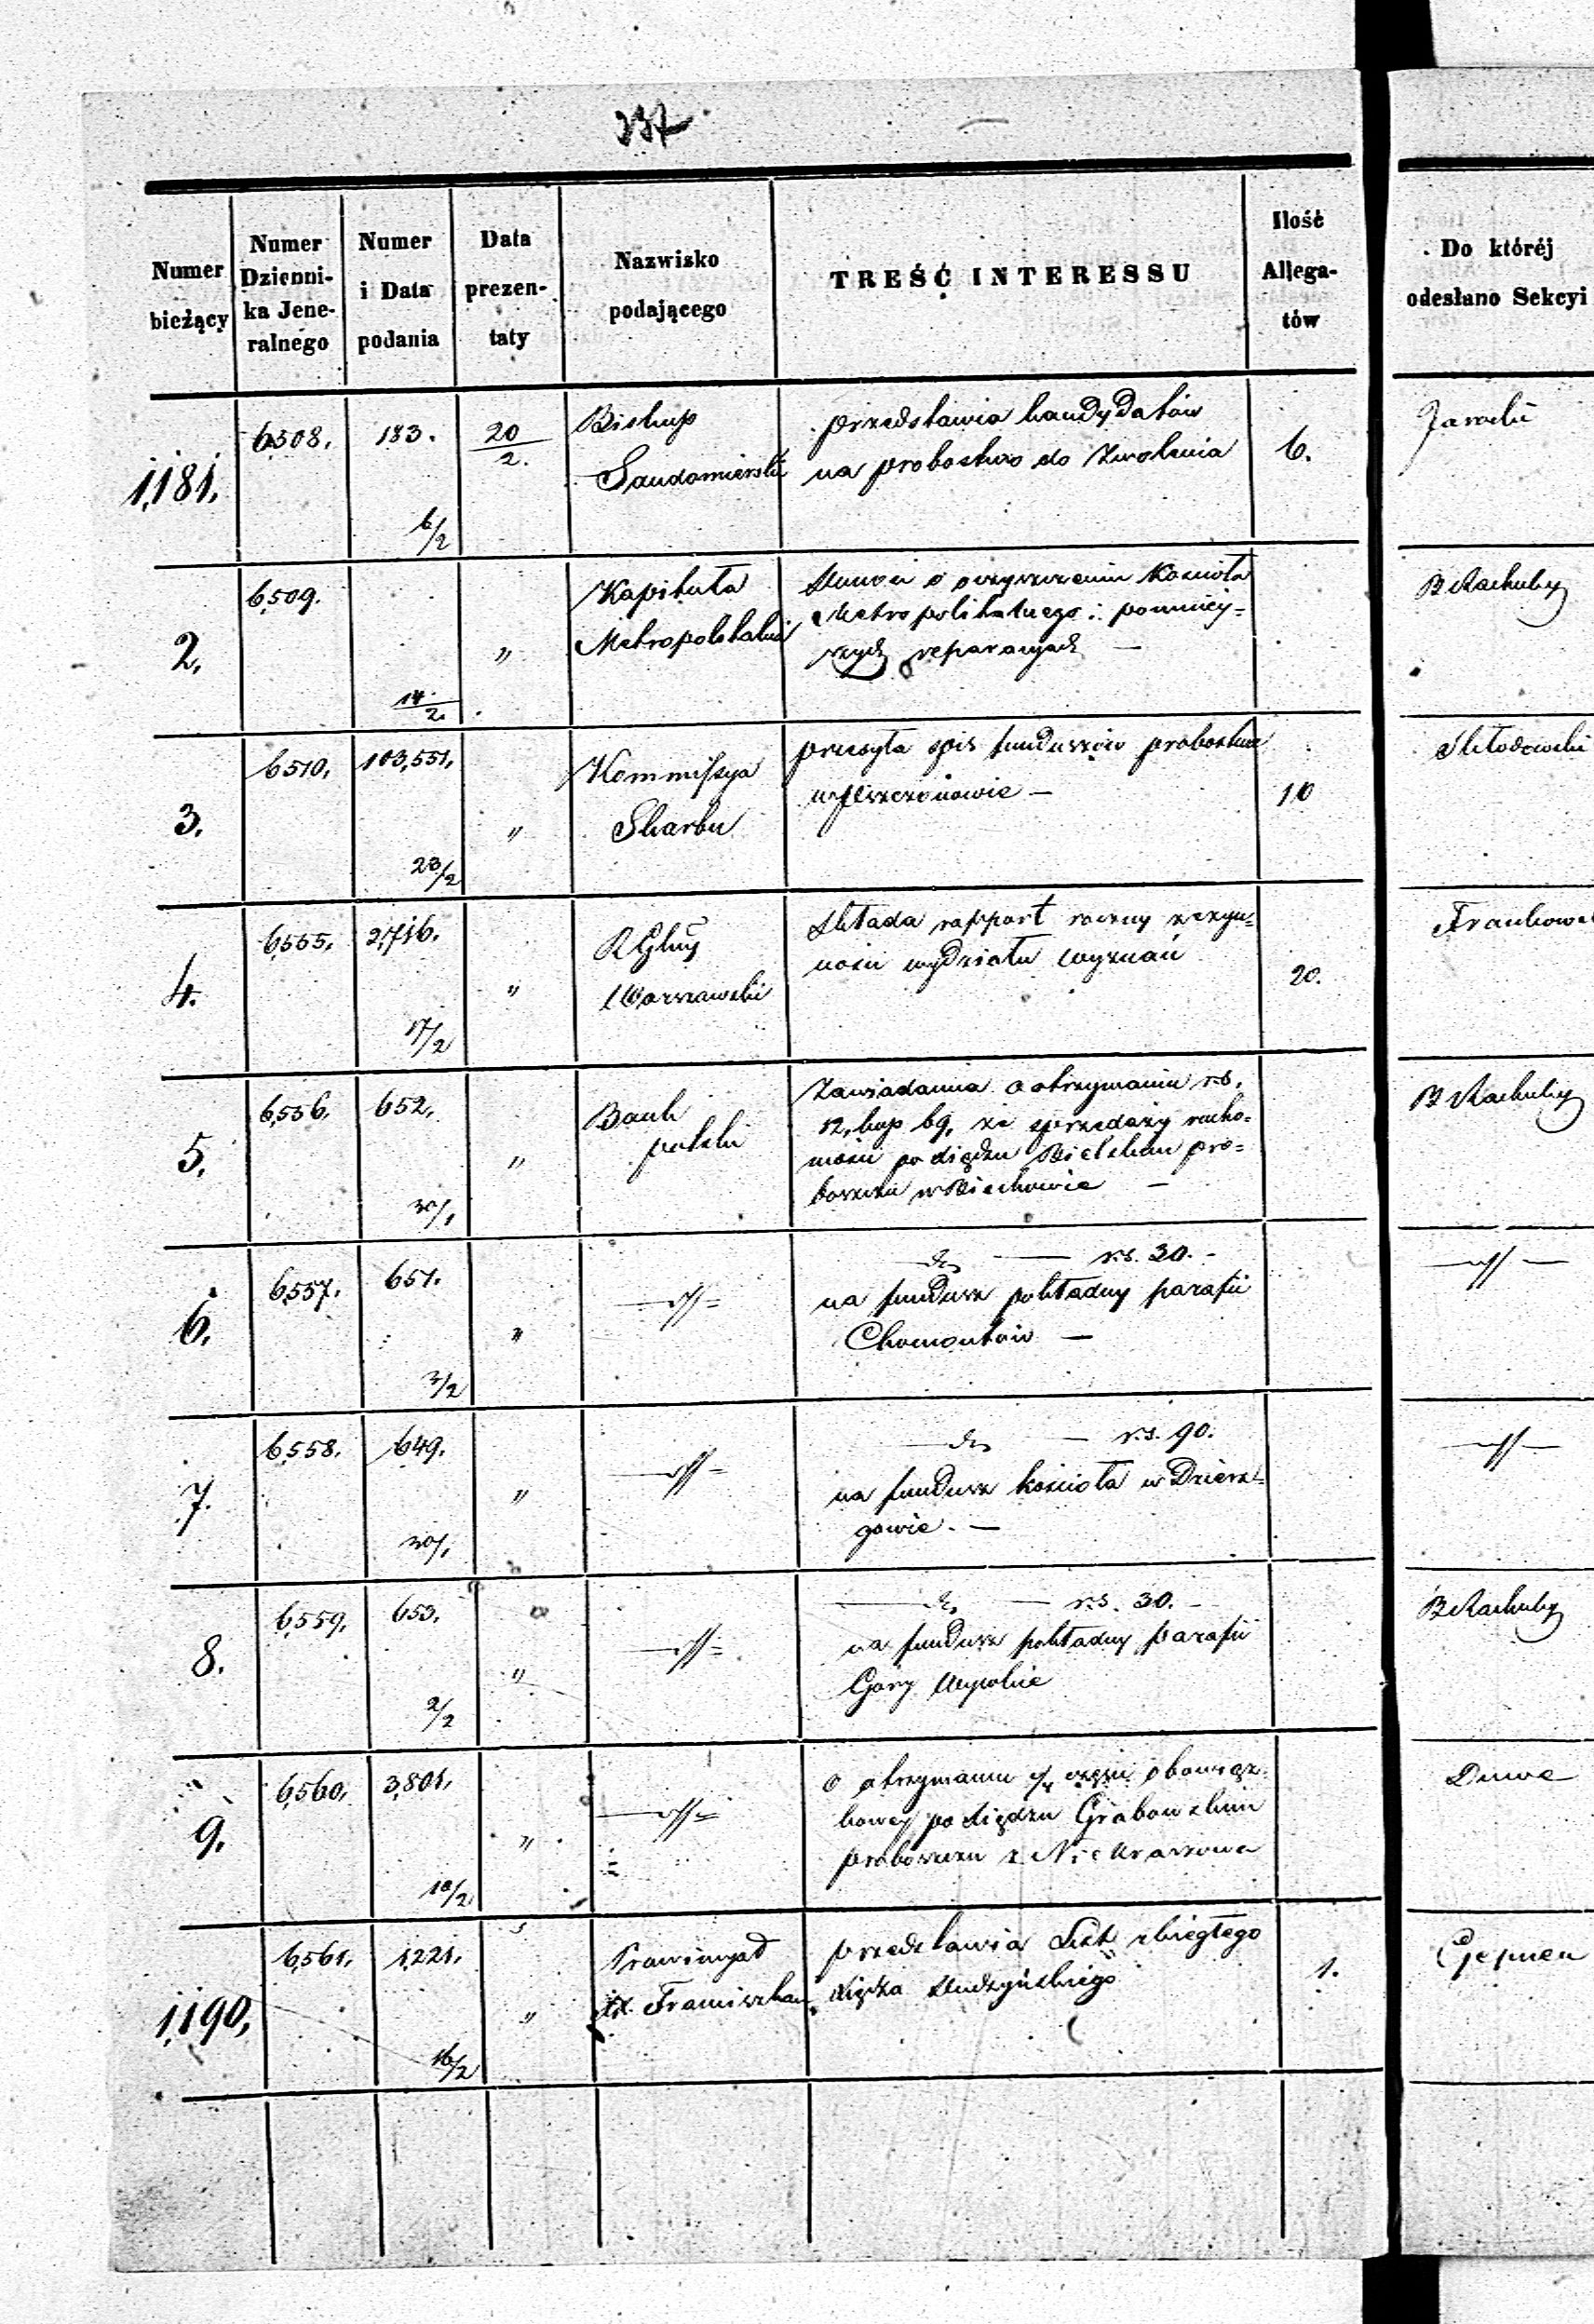 237
Numer bieżący
Numer Dzienni-ka Jene-ralnego
Numer i Data podania
Data prezen-taty
Nazwisko podającego
TREŚĆ INTERESSU
Ilość Allega-tów
Do któréj odesłano Sekcyi
1,181. 6508. 183. 6/2 20/2.
Biskup
Sandomierski
przedstawia kandydatów
na probostwo do Zwolenia
6.
Jarocki
2. 6,509. 14/2. "
Kapituła
Metropolitalna
o oczyszczeniu Kościoła
Metropolitalnego i pomniej=
szych reparacyach —
B Rachuby
3. 6510. 103,551. 23/2 "
Kommissya
Skarbu
przesyła spis funduszów probostwa
w Mszczonowie —
10
Skłodowski
4. 6,555. 2,716. 17/2 "
R Glny
Warszawski
Składa rapport roczny z czyn=
ności wydziału wyznań
20.
5. 6,556. 652. 30/1 "
Bank
polski
Zawiadamia o otrzymaniu rs.
12, kop 69, ze sprzedaży rucho=
mości po Księdzu Bielskim pro=
boszczu w Biechowie —
B Rachuby
6. 6,557. 651. 3/2 "
—"—
do — rs. 30. -
na fundusz pokładny parafii
Chomentów —
—"—
7. 6,558. 649. 30/1 "
—"—
do — rs. 90.
na fundusz kościoła w Dzierz=
gowie. —
—"—
8. 6,559. 653. 2/2 "
—"—
do — rs. 30. -
na fundusz pokładny parafii
Góry
B Rachuby
9. 6,560. 3,801. 10/2 "
—"—
o otrzymaniu 1/4 części
po Księdzu Grabowskim
proboszczu z Niekrasowa
10/2
1,190. 6,561. 1,221. 16/2 "
Prowincyał
XX. Franciszkan.
przedstawia List zbiegłego
Księdza Studzyńskiego
1.